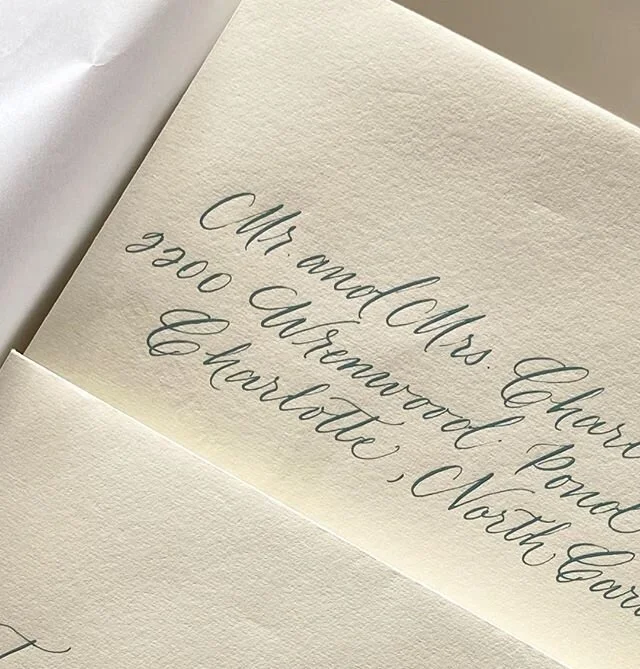 Mr. and Mrs. Charl
2200 Wrenwood Pond
Charlotte, North Car